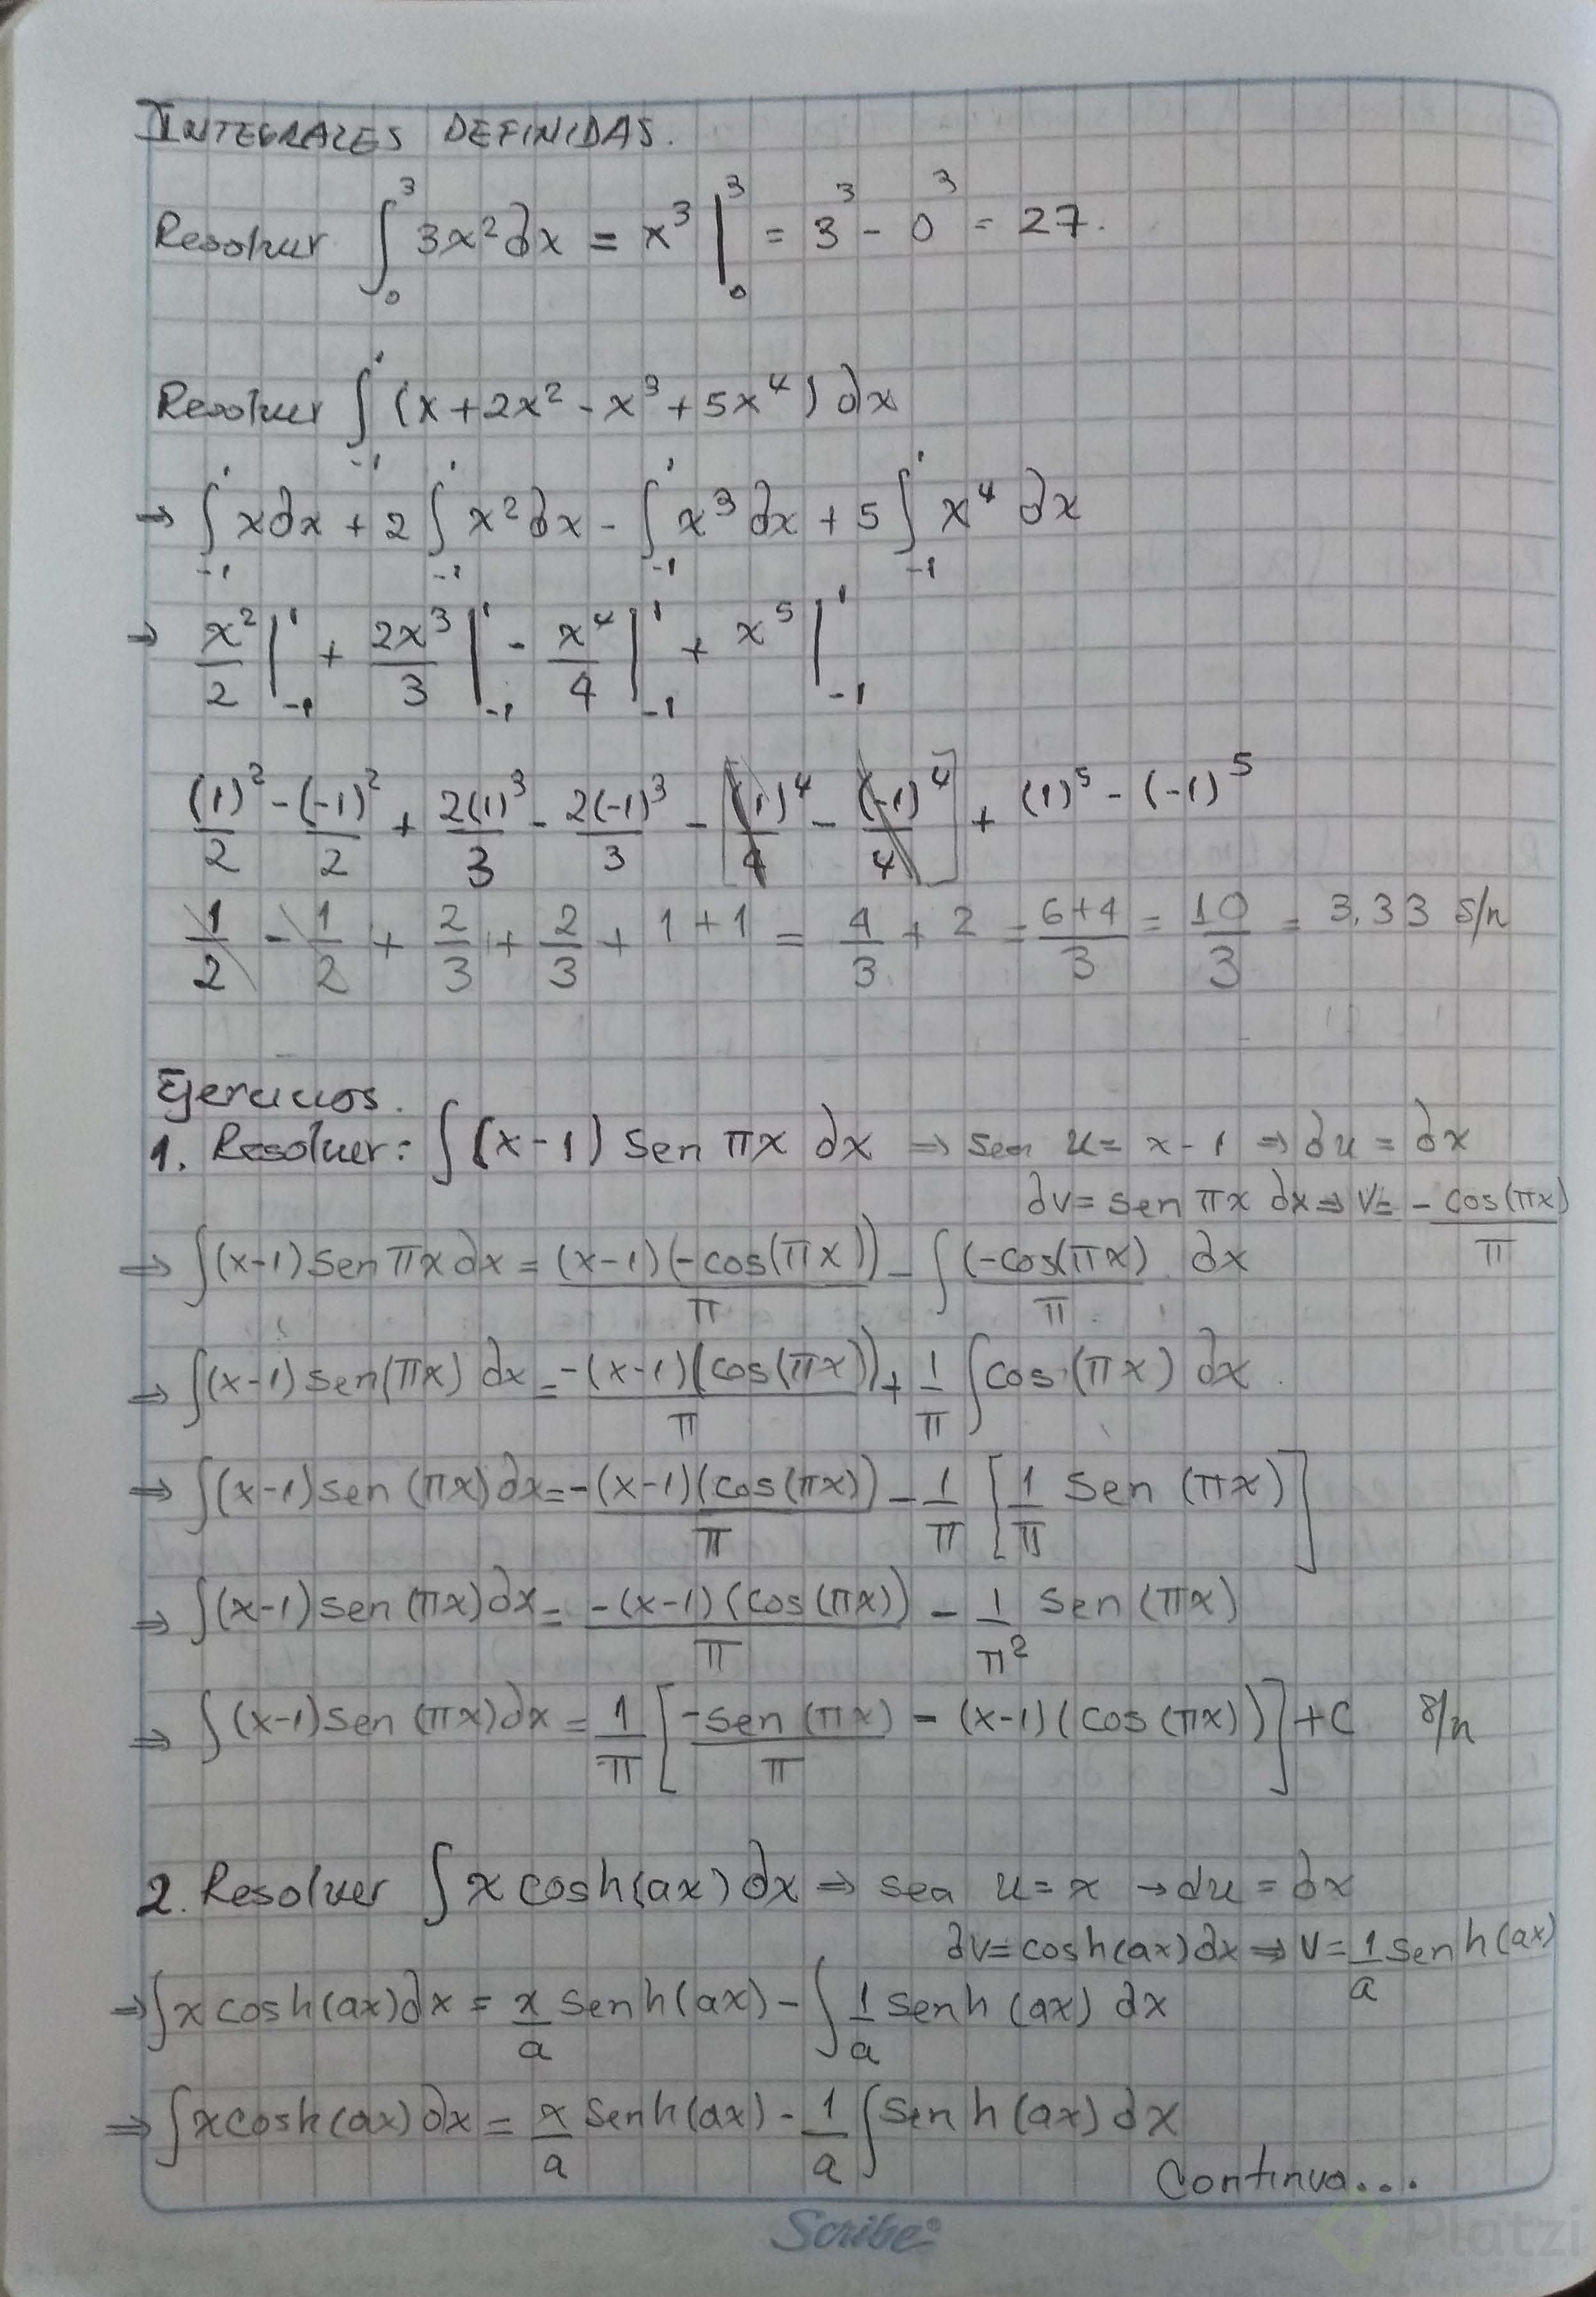 INTEGRALES DEFINIDAS.
Resolver ∫₀³ 3x² dx = x³ |₀³ = 3³ - 0³ = 27.
Resolver ∫₋₁¹ (x + 2x² - x³ + 5x⁴) dx
⇒ ∫₋₁¹ x dx + 2 ∫₋₁¹ x² dx - ∫₋₁¹ x³ dx + 5 ∫₋₁¹ x⁴ dx
⇒ x²/2 |₋₁¹ + 2x³/3 |₋₁¹ - x⁴/4 |₋₁¹ + x⁵ |₋₁¹
(1)²/2 - (-1)²/2 + 2(1)³/3 - 2(-1)³/3 - [(1)⁴/4 - (-1)⁴/4] + (1)⁵ - (-1)⁵
1/2 - 1/2 + 2/3 + 2/3 + 1 + 1 = 4/3 + 2 = 6+4/3 = 10/3 = 3,33 s/n
Ejercicios.
1. Resolver: ∫(x-1) sen πx dx ⇒ sea u = x-1 ⇒ du = dx
dv = sen πx dx ⇒ v = - cos(πx)/π
⇒ ∫(x-1) sen πx dx = (x-1)(-cos(πx))/π - ∫ (-cos(πx)/π dx
⇒ ∫(x-1) sen(πx) dx = -(x-1)(cos(πx))/π + 1/π ∫cos(πx) dx
⇒ ∫(x-1) sen (πx) dx = -(x-1)(cos(πx))/π - 1/π [1/π sen (πx)]
⇒ ∫(x-1) sen (πx) dx = -(x-1)(cos(πx))/π - 1/π² sen (πx)
⇒ ∫(x-1) sen (πx) dx = 1/π [-sen (πx)/π - (x-1)(cos(πx))] + C s/n
2. Resolver ∫ x cosh(ax) dx ⇒ sea u = x → du = dx
dv = cosh(ax) dx ⇒ v = 1/a senh(ax)
⇒ ∫x cosh(ax) dx = x/a senh(ax) - ∫ 1/a senh (ax) dx
⇒ ∫x cosh(ax) dx = x/a senh(ax) - 1/a ∫ senh (ax) dx
Continua...
Scribe®
Platzi